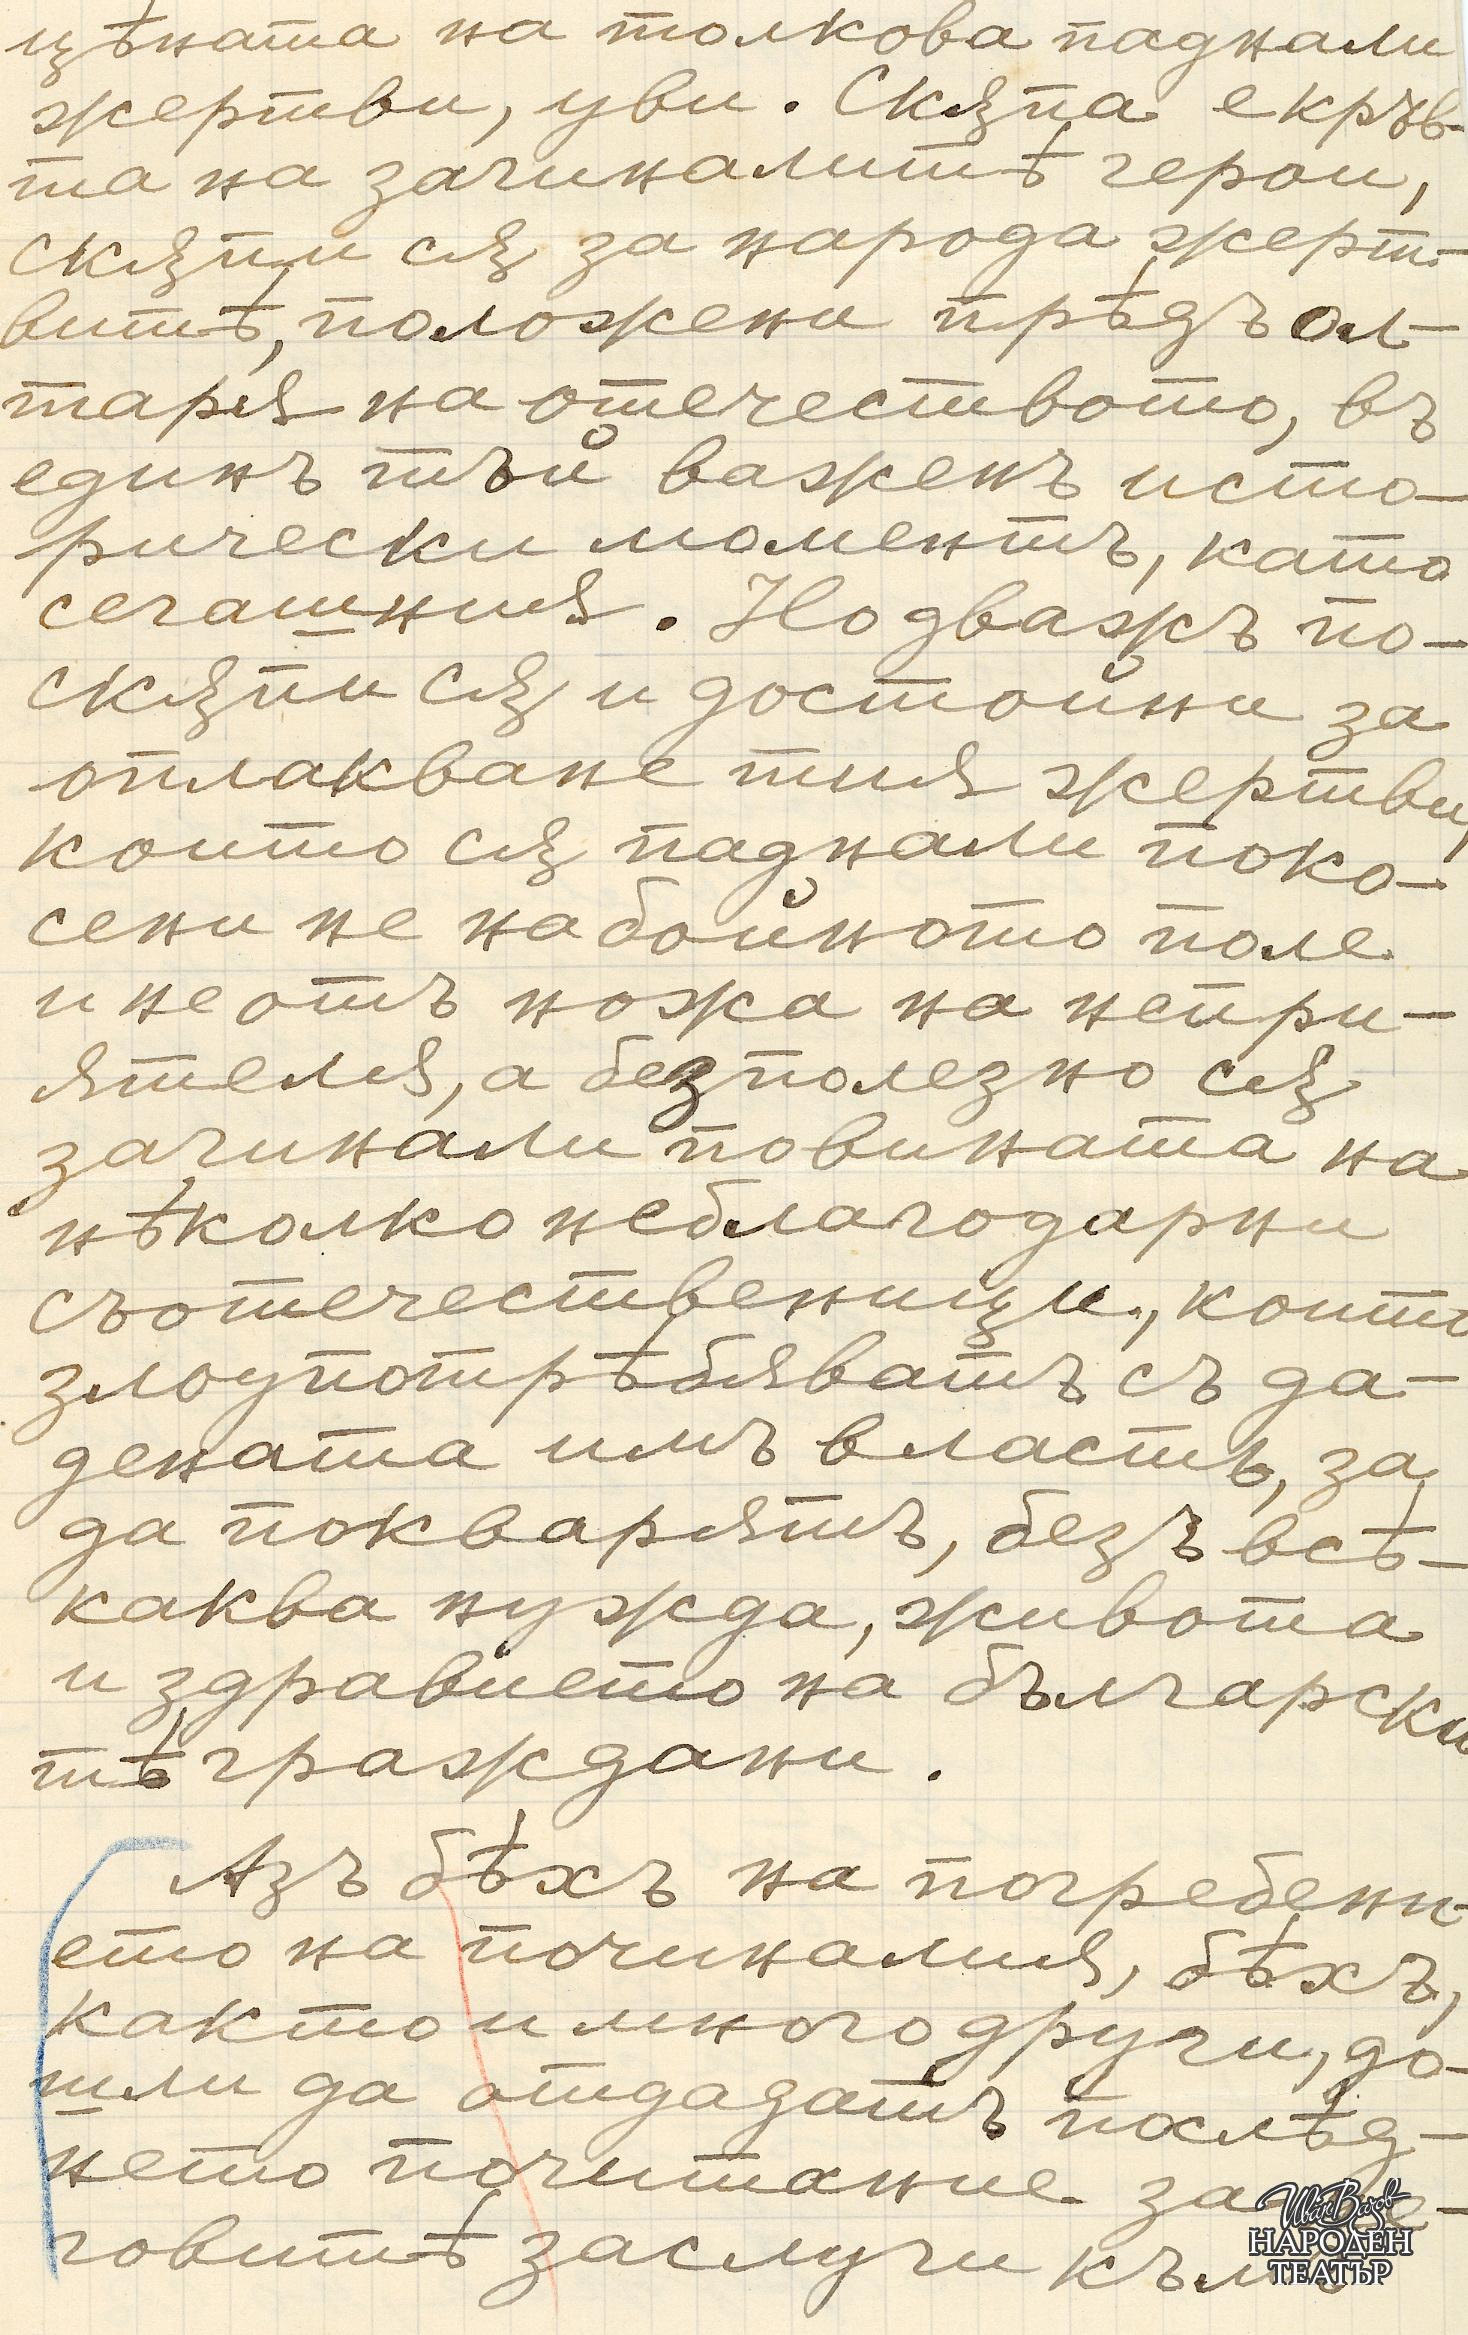 цѣната на толкова паднали
жертви, уви. Скѫпа е кръв-
та на загиналитѣ герои,
скѫпи сѫ за народа жерт-
витѣ, положени прѣдъ ол-
таря на отечеството, въ
единъ тъй важенъ исто-
рически моментъ, като
сегашния. Но дважъ по-
скѫпи сѫ и достойни за
оплакване тия жертви,
които сѫ паднали поко-
сени не на бойното поле
и не отъ ножа на непри-
ятеля, а безполезно сѫ
загинали по вината на
нѣколко неблагодарни
съотечественици, които
злоупотрѣбяватъ съ да-
дената имъ власть, за
да покварятъ, безъ всѣ-
каква нужда, живота
и здравието на български
тѣ граждани.
Азъ бѣхъ на погребени-
ето на починалия, бѣхъ,
както и много други, до-
шли да отдадатъ послѣд-
нето почитание за не-
говитѣ заслуги към
Иван Вазов
НАРОДЕН
ТЕАТЪР